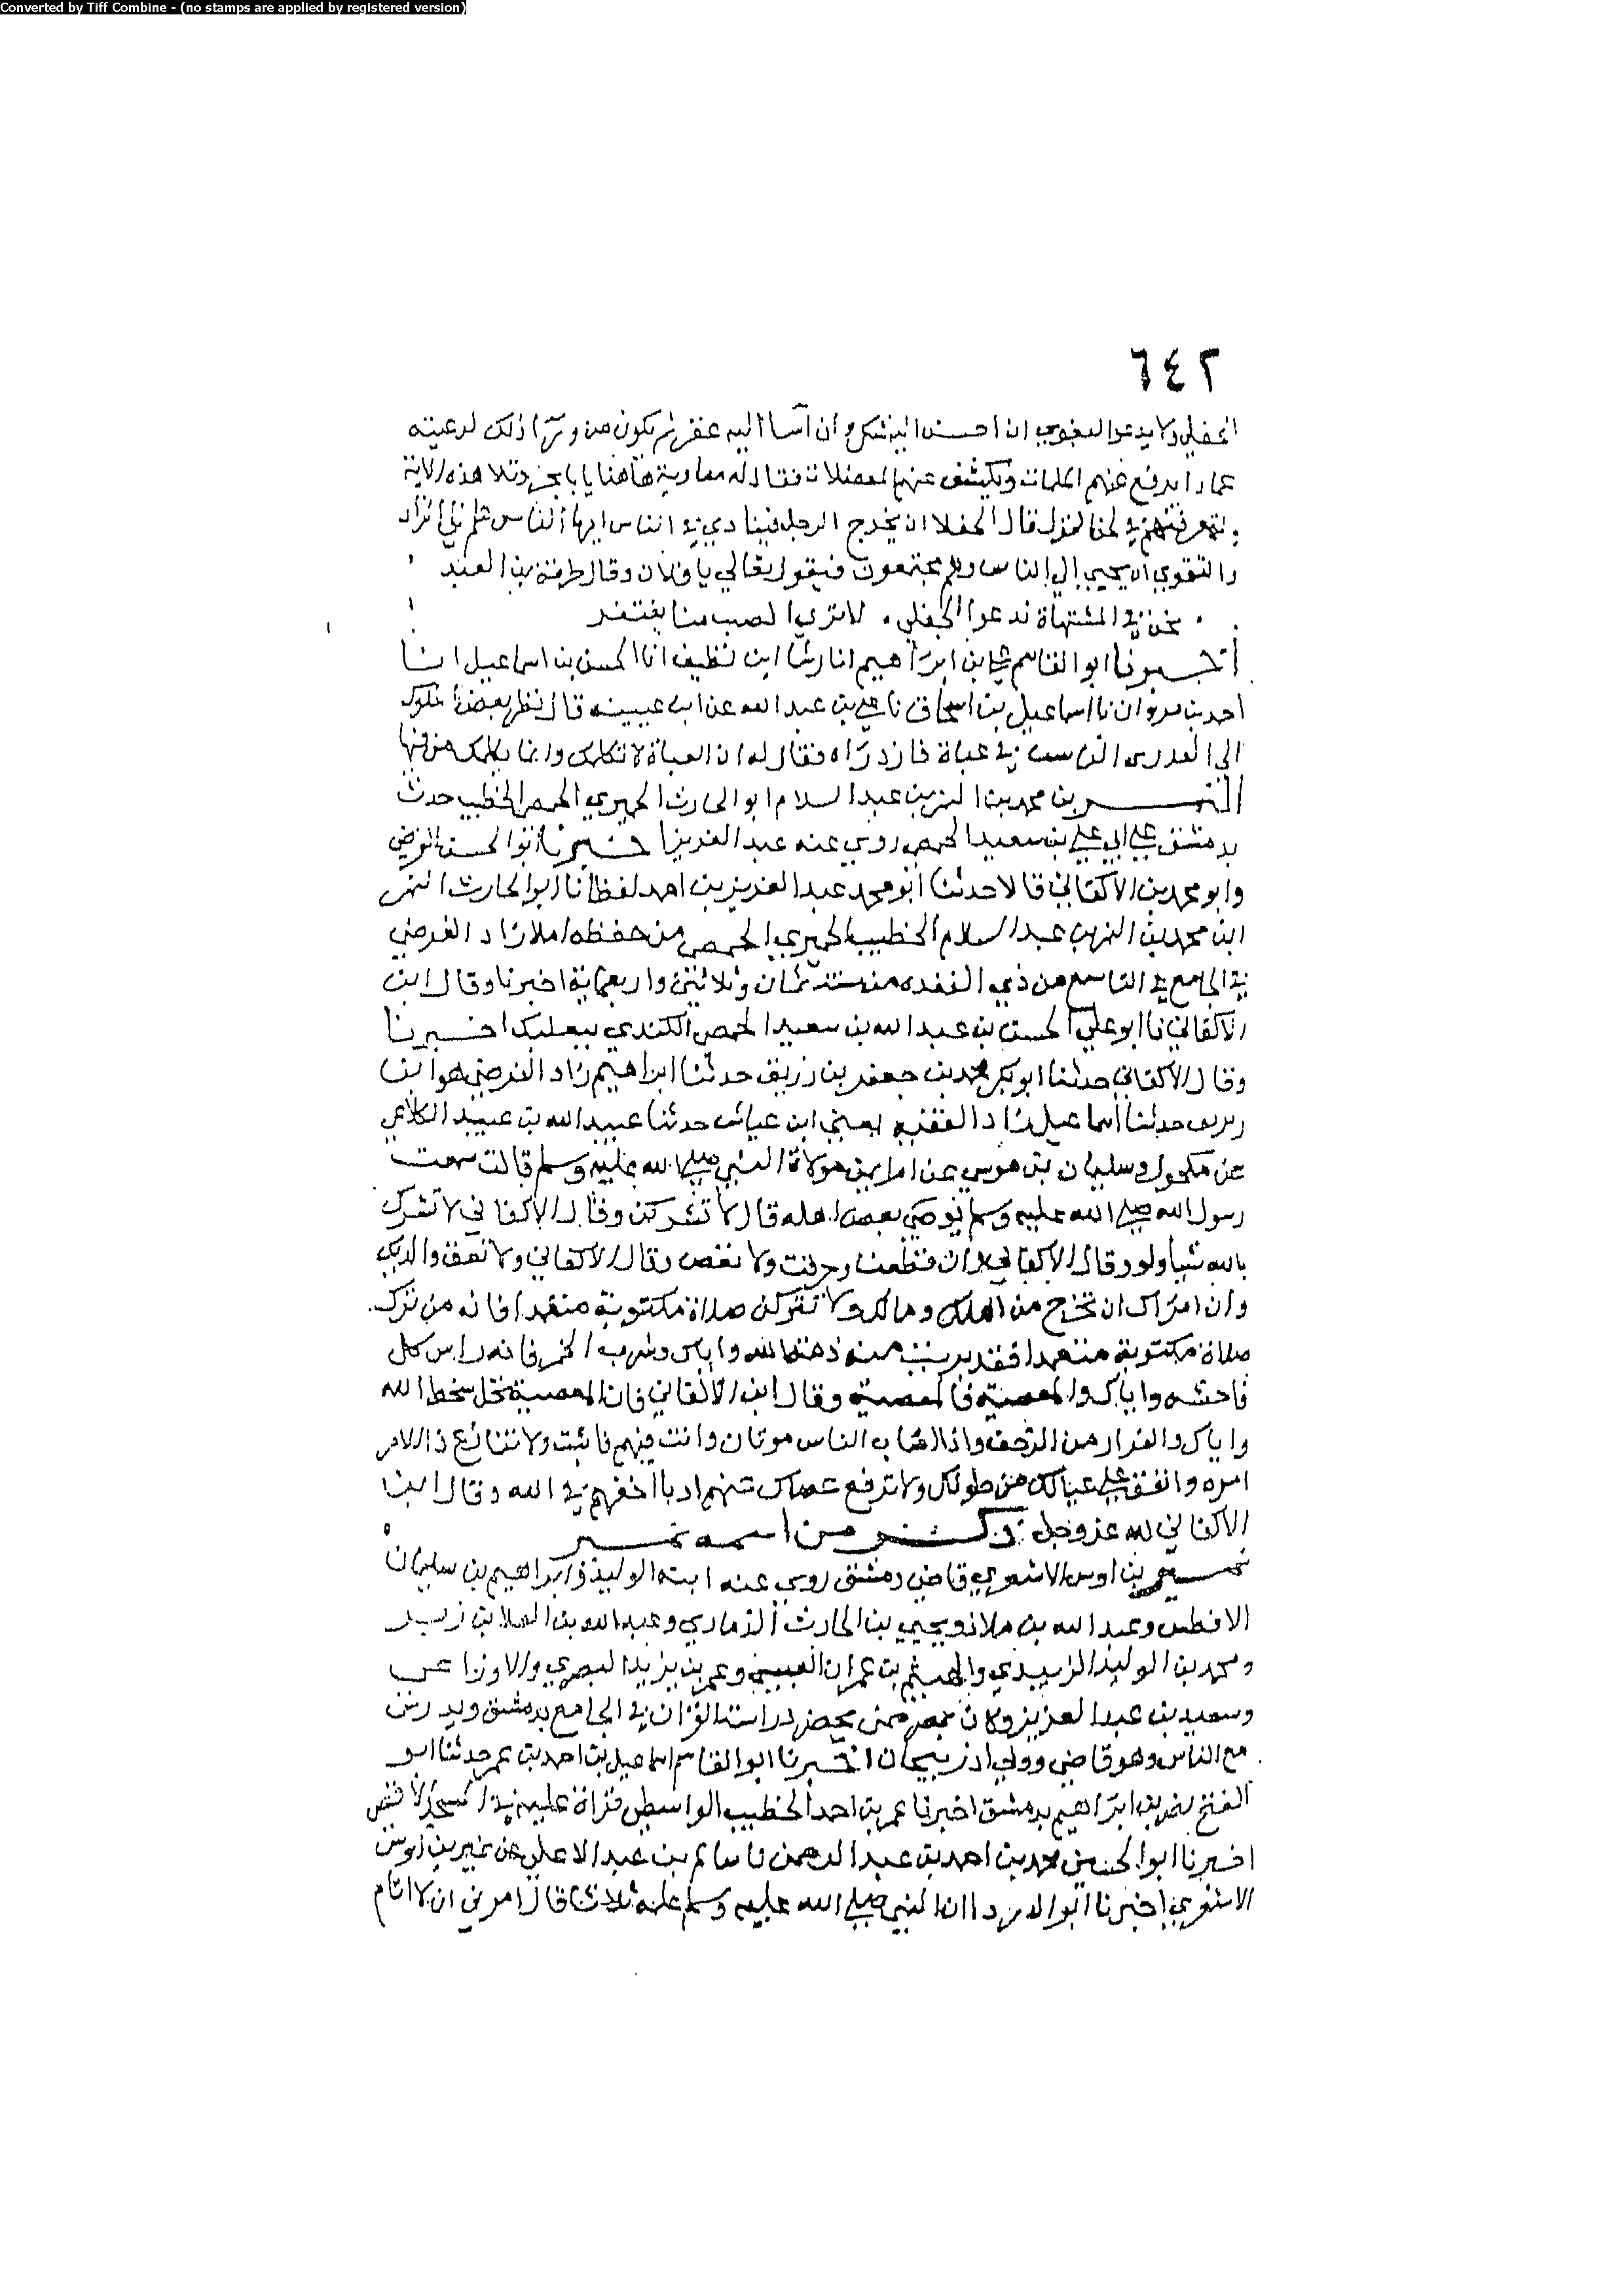 Converted by Tiff Combine - (no stamps are applied by registered version)
٦٤٢
الجفلي ولا يدعوا النقوي ان احسن اليه شكر وان اسا اليه غفر ثم يكون من ورآ ذلك لرعيته
عمادا يدفع عنهم الملمات ويكشف عنهم المعضلات فقال له معاوية هاهنا يا با بحر وتلا هذه الاية
ولتعرفنهم في لحن القول قال الجفلا ان يخرج الرجل فينادي في الناس ايها الناس هلم
والنقوي ان يجيي الي الناس وهم مجتمعون فيقول تعالي يا فلان وقال طرفة بن العبد
نحن في المشتاة ندعوا الجفلي لا تري الادب منا ينتقر
اخبرنا ابو القاسم علي بن ابراهيم انا رشا ابن نظيف انا الحسن بن اسماعيل انا
احمد بن مروان نا اسماعيل بن اسحاق نا علي بن عبد الله عن ابن عيينه قال نظر بعض الملوك
الي العذري الناسب في عباة فازدراه فقال له ان العباة لا تكلمك وانما يكلمك من فيها
النمر بن محمد بن النمر بن عبد السلام ابو الحارث الحميري الحمصي الخطيب حدث
بدمشق علي ابي علي بن سعيد الحمصي روي عنه عبد العزيز اخبرنا ابو الحسن الفرضي
وابو محمد بن الاكفاني قالا حدثنا ابو محمد عبد العزيز بن احمد لفظا نا ابو الحارث النمر
ابن محمد بن النمر بن عبد السلام الخطيب الحميري الحمصي من حفظه املا زاد الفرضي
في الجامع في التاسع من ذي القعده من سنة ثمان وثلاثين واربعماية اخبرنا وقال ابن
الاكفاني نا ابو علي الحسن بن عبد الله بن سعيد الحمصي الكندي ببعلبك اخبرنا
وقال الاكفاني حدثنا ابو بكر محمد بن جعفر بن زريق حدثنا ابراهيم زاد الفرضي هو ابن
زريق حدثنا اسماعيل زاد الفقيه يعني ابن عياش حدثنا عبيد الله بن عبيد الكلاعي
عن مكحول وسليمان بن موسي عن ام ايمن مولاة النبي صلي الله عليه وسلم قالت سمعت
رسول الله صلي الله عليه وسلم يوصي بعض اهله قال لا تشركن وقال الاكفاني لا تشرك
بالله شيا ولو وقال الاكفاني وان قطعت وحرقت ولا تعص وقال الاكفاني ولا تعقق والديك
وان امراك ان تخرج من اهلك ومالك ولا تتركن صلاة مكتوبة متعمدا فانه من ترك
صلاة مكتوبة متعمدا فقد بريت منه ذمة الله واياك وشرب الخمر فانه راس كل
فاحشه واياك والمعصية فالمعصية وقال ابن الاكفاني فان المعصية تحل سخط الله
واياك والفرار من الزحف واذا اصاب الناس موتان وانت فيهم فاثبت ولا تنازع ذا الامر
امره وانفق علي عيالك من طولك ولا ترفع عصاك عنهم ادبا اخفهم في الله وقال ابن
الاكفاني لله عز وجل ذكر من اسمه نمير
نمير بن اوس الاشعري قاضي دمشق روي عنه ابنه الوليد وابراهيم بن سليمان
الافطس وعبد الله بن ملاذ ويحيي بن الحارث الذماري وعبد الله بن العلا بن زبر
ومحمد بن الوليد الزبيدي والهيثم بن عمران العبسي وعمر بن يزيد البصري والاوزاعي
وسعيد بن عبد العزيز وكان نمير ممن يحضر دراسة القران في الجامع بدمشق ويدرس
مع الناس وهو قاضي وولي اذربيجان اخبرنا ابو القاسم اسماعيل بن احمد بن عمر حدثنا ابو
الفتح نصر بن ابراهيم بدمشق اخبرنا عمر بن احمد الخطيب الواسطي قراة عليه في المسجد الاقصي
اخبرنا ابو الحسين محمد بن احمد بن عبد الرحمن نا سالم بن عبد الاعلي عن نمير بن اوس
الاشعري اخبرنا ابو الدردا ان النبي صلي الله عليه وسلم علمه ثلاثا قال امرني ان لا انام